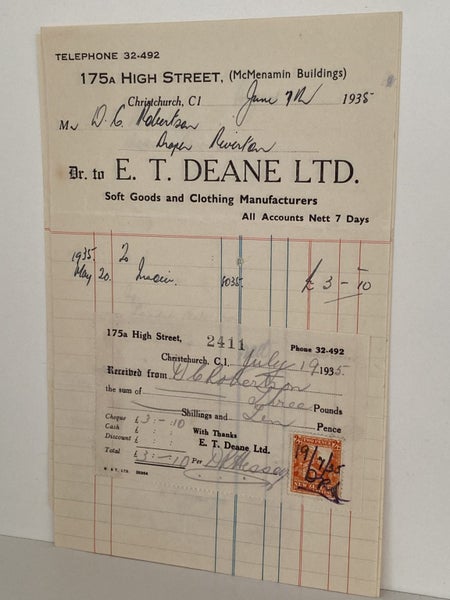 TELEPHONE 32-492
175A HIGH STREET, (McMenamin Buildings)
Christchurch, C1 June 7th 1935
Mr D. C. Robertson
Draper Riverton
Dr. to E. T. DEANE LTD.
Soft Goods and Clothing Manufacturers
All Accounts Nett 7 Days
1935. To
May 20. Invoice. 1035 £ 3 - 10
175A High Street, 2411 Phone 32-492
Christchurch, C.1. July 19 1935
Received from D C Robertson
the sum of Three Pounds
Shillings and Ten Pence
Cheque £3 : - 10 With Thanks
Cash £ : : E. T. Deane Ltd.
Discount £ : :
Total £3 : - 10 Per
19/7/35